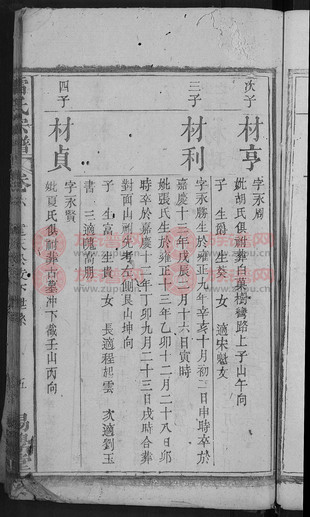 次子
材亨
字永周
妣胡氏俱祔葬白菓樹彎路上子山午向
子 生爵 生葵 女 適宋魁女
三子
材利
字永勝生於雍正九年辛亥十月初二日申時卒於
嘉慶十三年戊辰二月十六日寅時
妣張氏生於雍正十三年乙卯十二月二十八日卯
時卒於嘉慶十二年丁卯九月二十三日戌時合葬
對面山祖先考左側艮山坤向
子 生富 生貴 女 長適程起雲 次適劉玉
書 三適魏高朋
四子
材貞
字永賢
妣夏氏俱祔葬古壟冲下截壬山丙向
氏宗譜
卷
五